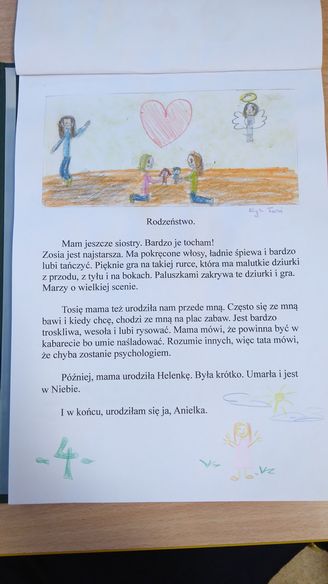 Rodzeństwo.
Mam jeszcze siostry. Bardzo je tocham!
Zosia jest najstarsza. Ma pokręcone włosy, ładnie śpiewa i bardzo
lubi tańczyć. Pięknie gra na takiej rurce, która ma malutkie dziurki
z przodu, z tyłu i na bokach. Paluszkami zakrywa te dziurki i gra.
Marzy o wielkiej scenie.
Tosię mama też urodziła nam przede mną. Często się ze mną
bawi i kiedy chcę, chodzi ze mną na plac zabaw. Jest bardzo
troskliwa, wesoła i lubi rysować. Mama mówi, że powinna być w
kabarecie bo umie naśladować. Rozumie innych, więc tata mówi,
że chyba zostanie psychologiem.
Później, mama urodziła Helenkę. Była krótko. Umarła i jest
w Niebie.
I w końcu, urodziłam się ja, Anielka.
- 4 -